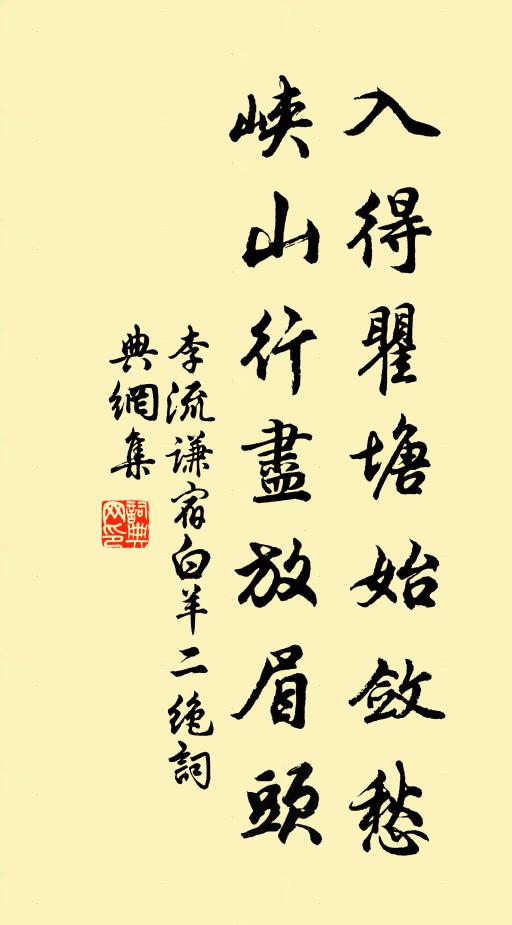 入得瞿塘始斂愁
峽山行盡放眉頭
李流謙宿白羊二絶詞
典網集
詞典
网印